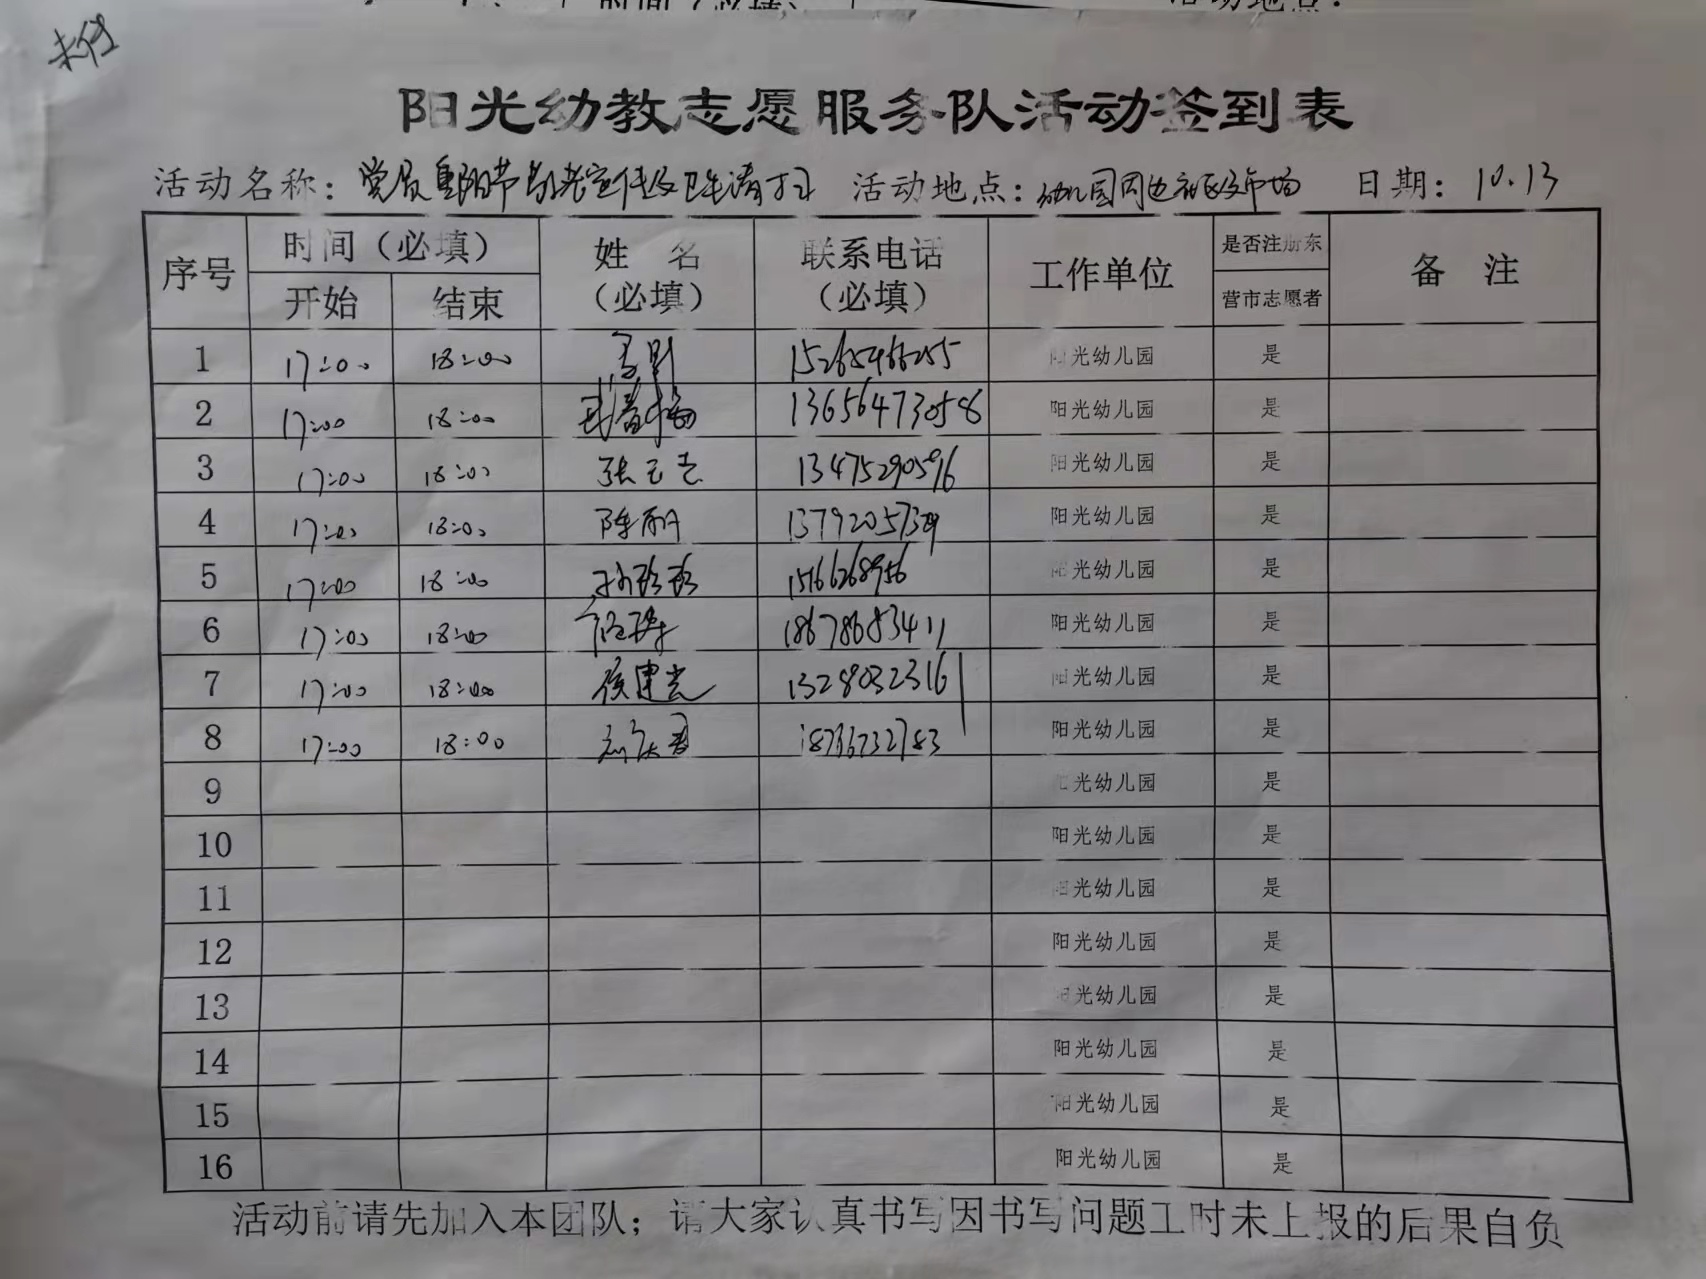 阳光幼教志愿服务队活动签到表
活动名称：党员重阳节敬老宣传及卫生清扫 活动地点：幼儿园周边社区及市场 日期：10.13
序号 时间（必填） 姓 名（必填） 联系电话（必填） 工作单位 是否注册东营市志愿者 备 注
开始 结束
1 17:00 18:00 15265466255 阳光幼儿园 是
2 17:00 18:00 武春梅 13656473058 阳光幼儿园 是
3 17:00 18:00 13475290596 阳光幼儿园 是
4 17:00 18:00 陈丽 阳光幼儿园 是
5 17:00 18:00 孙珍珍 15166268956 阳光幼儿园 是
6 17:00 18:00 18678683411 阳光幼儿园 是
7 17:00 18:00 侯建光 13280323161 阳光幼儿园 是
8 17:00 18:00 18766732783 阳光幼儿园 是
9 阳光幼儿园 是
10 阳光幼儿园 是
11 阳光幼儿园 是
12 阳光幼儿园 是
13 阳光幼儿园 是
14 阳光幼儿园 是
15 阳光幼儿园 是
16 阳光幼儿园 是
活动前请先加入本团队；请大家认真书写因书写问题工时未上报的后果自负